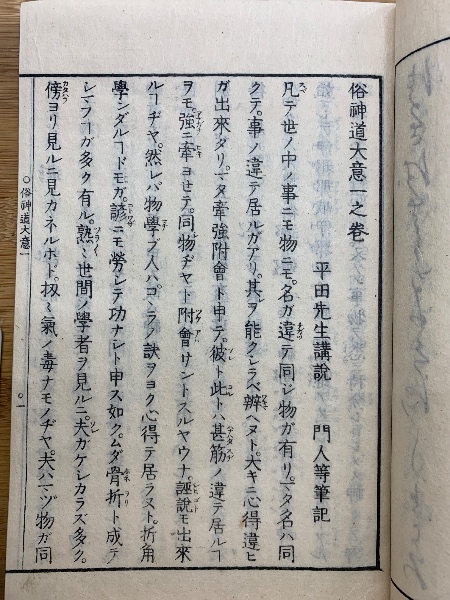 俗神道大意一之巻
平田先生講説　門人等筆記
凡テ世ノ中ノ事ニモ物ニモ。名ガ違テ同ジ物ガ有リ。マタ名ハ同
クテ。事ノ違テ居ルガアリ。其ヲ能クシラベ辨ヘヌト。大キニ心得違ヒ
ガ出來タリ。マタ牽強附會ト申テ。彼ト此トハ甚筋ノ違テ居ルヿ
ヲモ。強ニ牽ヨセテ。同物ヂヤト附會ケントスルヤウナ。誣説モ出來
ルヿヂヤ。然レバ物學ブ人ハ。コヽラノ訣ヲヨク心得テ居ラヌト。折角
學ンダルヿドモガ。諺ニモ勞シテ功ナシト申ス如ク。ムダ骨折ト成テ
シマフヿガ多ク有ル。熟〻世間ノ學者ヲ見ルニ。夫ガケシカラズ多ク。
傍ヨリ見ルニ見カネルホド。扨〻氣ノ毒ナモノヂヤ。夫ハマヅ物ガ同
○俗神道大意一
○一